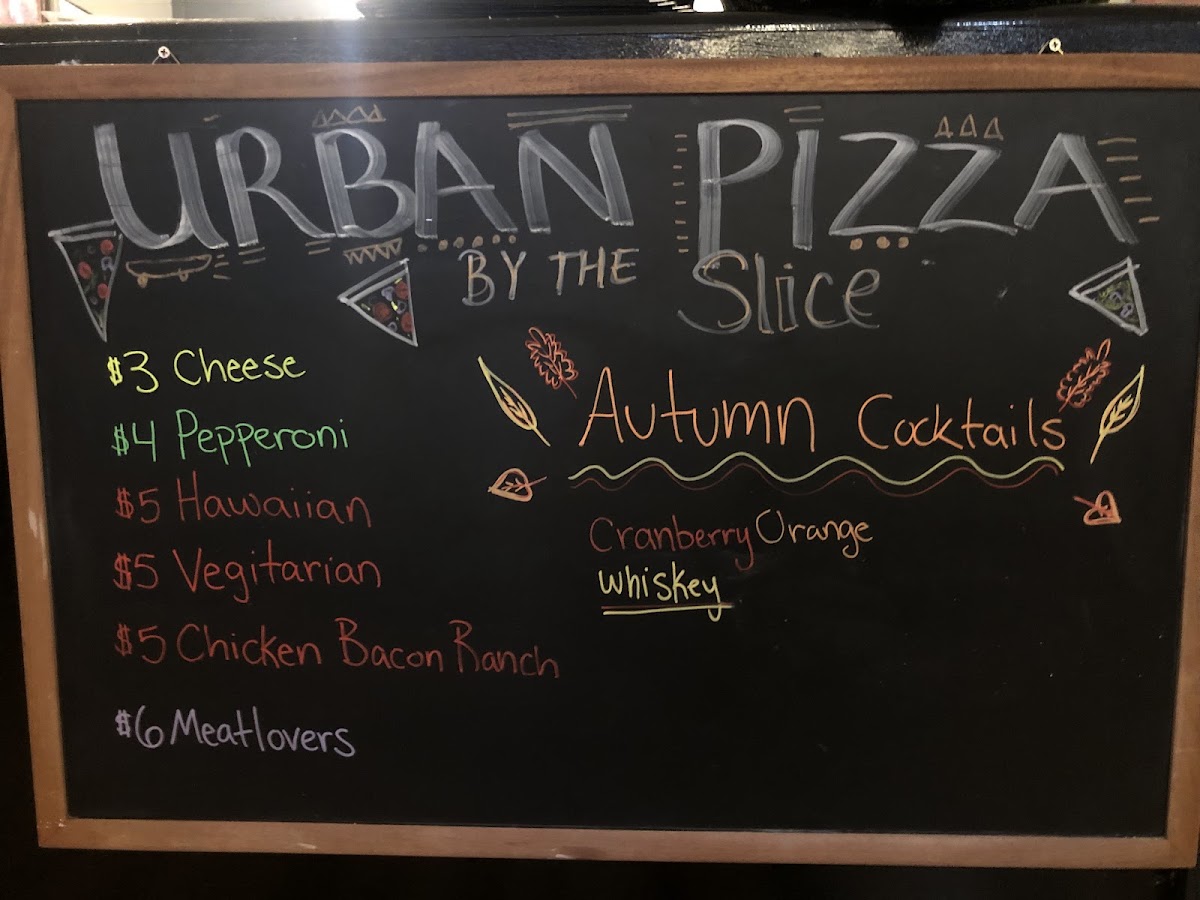 URBAN PIZZA
BY THE Slice
$3 Cheese
$4 Pepperoni
$5 Hawaiian
$5 Vegitarian
$5 Chicken Bacon Ranch
$6 Meatlovers
Autumn Cocktails
Cranberry Orange
whiskey